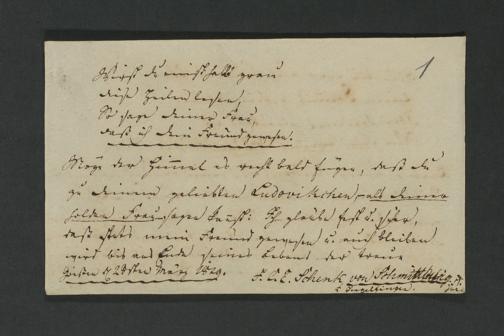 1
Wirst du einst halb grau
diese Zeilen lesen,
So sage deiner Frau,
daß ich dein Freund gewesen.
Möge der Himmel es recht bald fügen, daß du
zu deinem geliebten Ludovikchen, als deiner
holden Frau sagen kannst: Ich glaube fest u.
daß stets mein Freund gewesen u. auch bleiben
wird bis ans Ende seines Lebens der treue
Gießen d 28sten März 1829. F. C. E. Schenk von Schmittburg